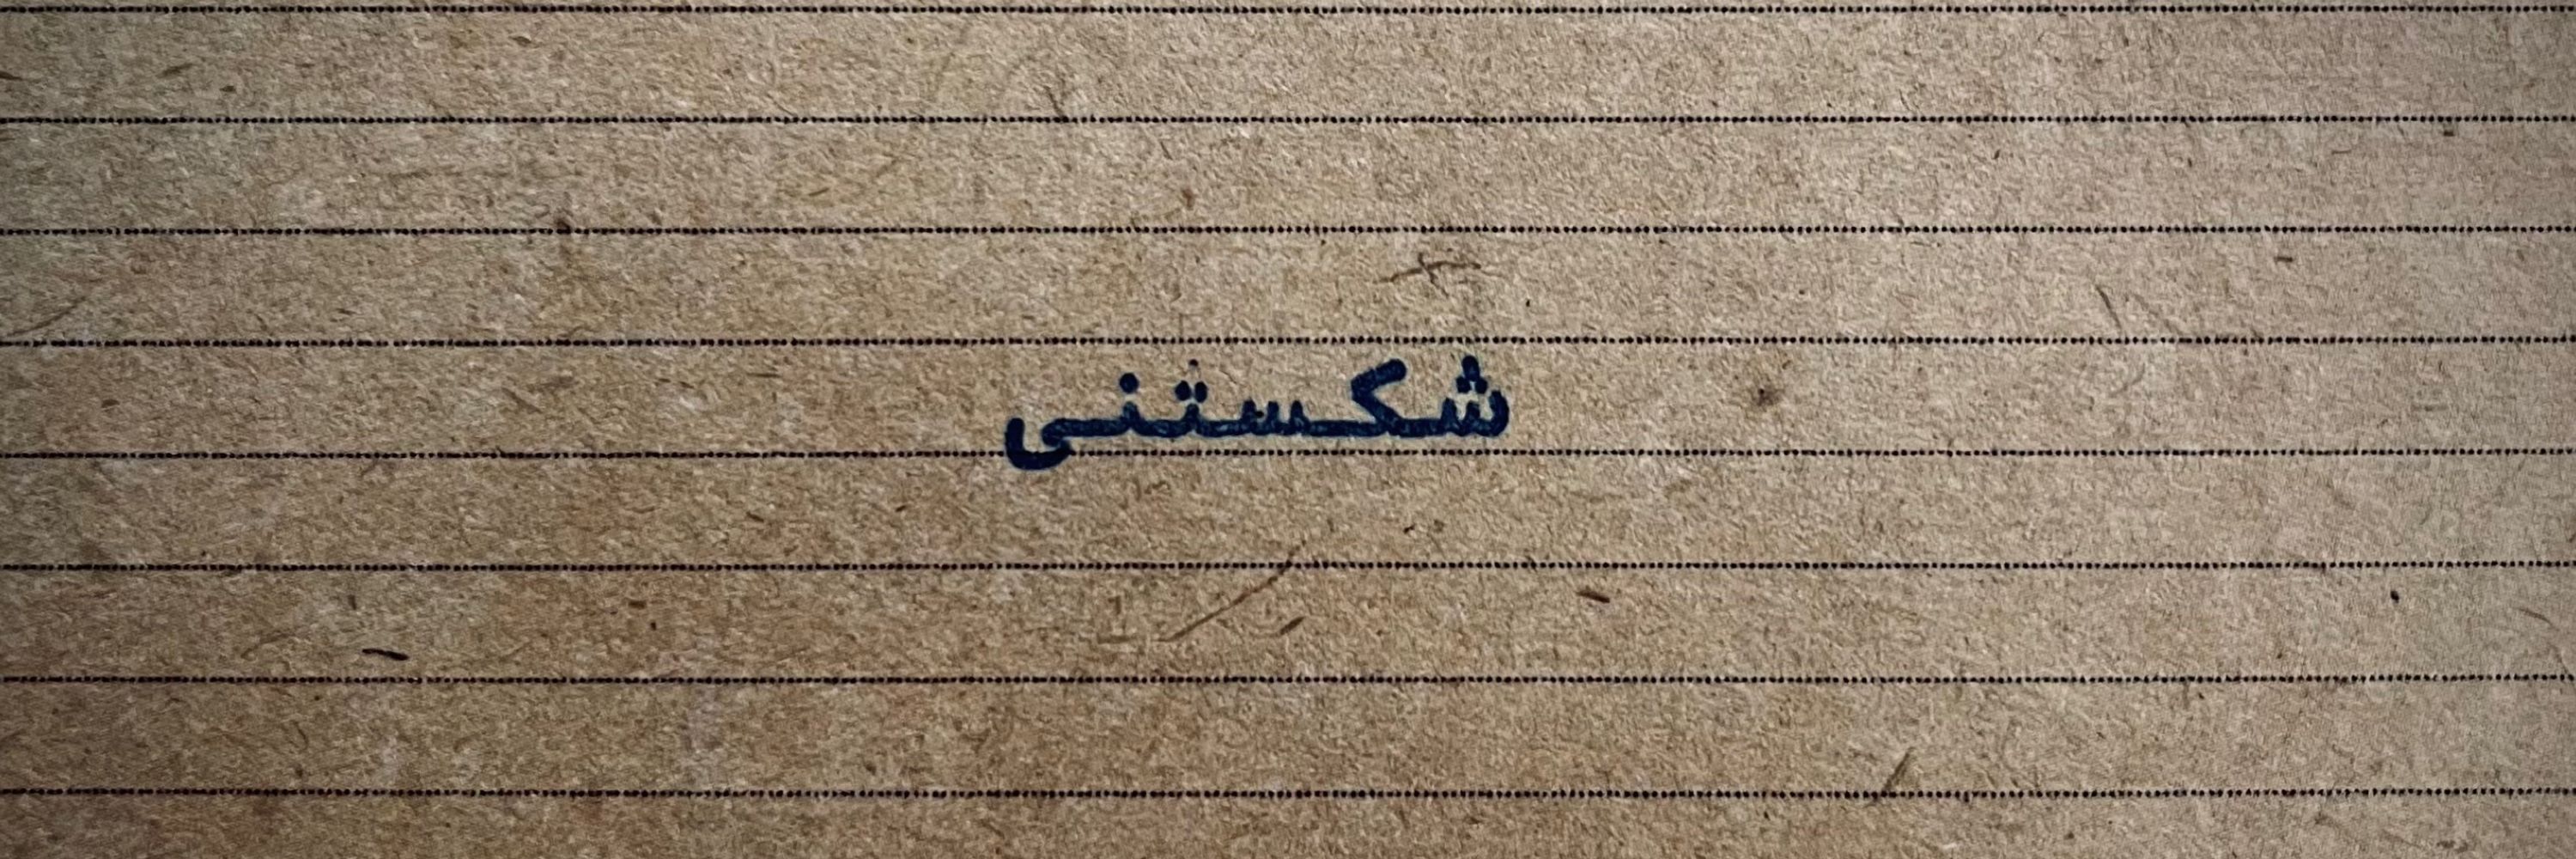 شکستنی